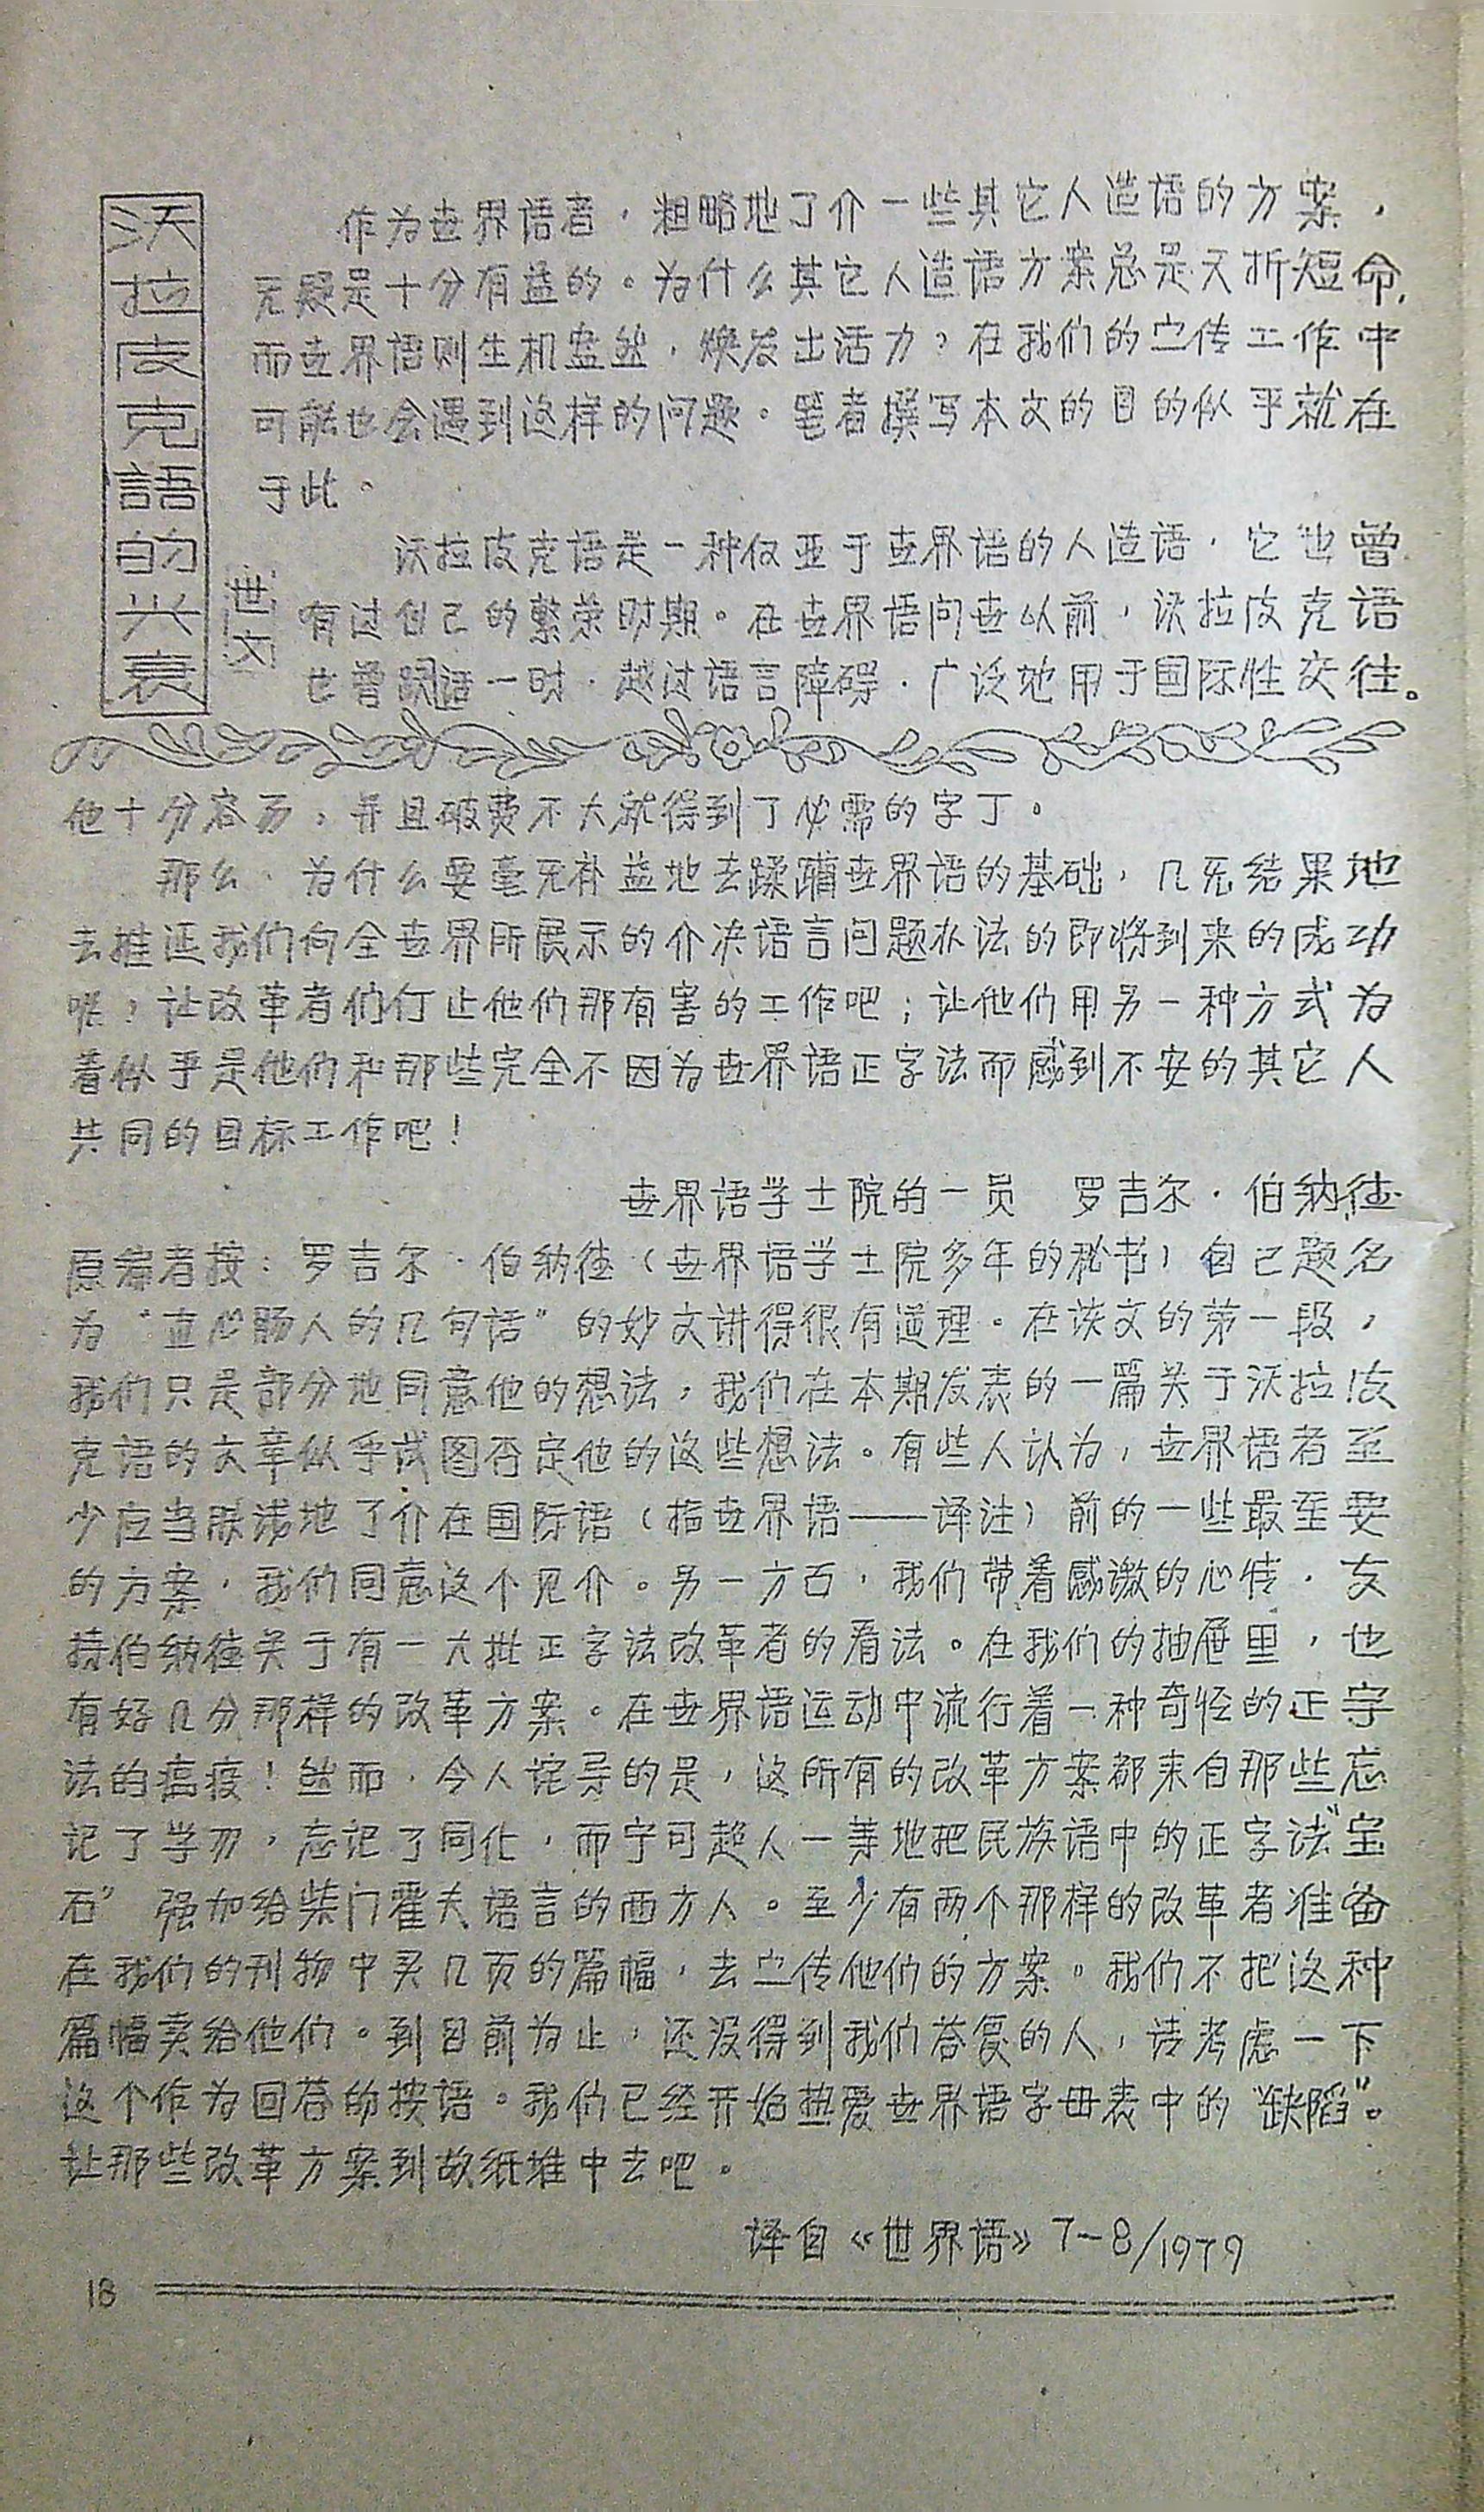 沃拉皮克語的兴衰
世文
作为世界语者，粗略地了介一些其它人造语的方案，
无疑是十分有益的。为什么其它人造语方案总是夭折短命，
而世界语则生机盎然，焕发出活力？在我们的宣传工作中
可能也会遇到这样的问题。笔者撰写本文的目的似乎就在
于此。
沃拉皮克语是一种仅亚于世界语的人造语，它也曾
有过自己的繁荣时期。在世界语问世以前，沃拉皮克语
也曾活一时，越过语言障碍，广泛地用于国际性交往。
他十分容易，并且破费不大就得到了必需的字丁。
那么，为什么要毫无补益地去蹂躏世界语的基础，几无结果地
去推迟我们向全世界所展示的介决语言问题办法的即将到来的成功
呢？让改革者们仃止他们那有害的工作吧；让他们用另一种方式为
着似乎是他们和那些完全不因为世界语正字法而感到不安的其它人
共同的目标工作吧！
世界语学士院的一员　罗吉尔·伯纳徒
原编者按：罗吉尔·伯纳徒（世界语学士院多年的秘书）自己题名
为“直心肠人的几句话”的妙文讲得很有道理。在该文的第一段，
我们只是部分地同意他的想法，我们在本期发表的一篇关于沃拉皮
克语的文章似乎试图否定他的这些想法。有些人认为，世界语者至
少应当肤浅地了介在国际语（指世界语——译注）前的一些最至要
的方案，我们同意这个见介。另一方面，我们带着感激的心情，支
持伯纳徒关于有一大批正字法改革者的看法。在我们的抽屉里，也
有好几分那样的改革方案。在世界语运动中流行着一种奇怪的正字
法的瘟疫！然而，令人诧异的是，这所有的改革方案都来自那些忘
记了学习，忘记了同化，而宁可超人一等地把民族语中的正字法“宝
石”强加给柴门霍夫语言的西方人。至少有两个那样的改革者准备
在我们的刊物中买几页的篇幅，去宣传他们的方案。我们不把这种
篇幅卖给他们。到目前为止，还没得到我们答复的人，请考虑一下
这个作为回答的按语。我们已经开始热爱世界语字母表中的“缺陷”。
让那些改革方案到故纸堆中去吧。
译自《世界语》7-8/1979
18